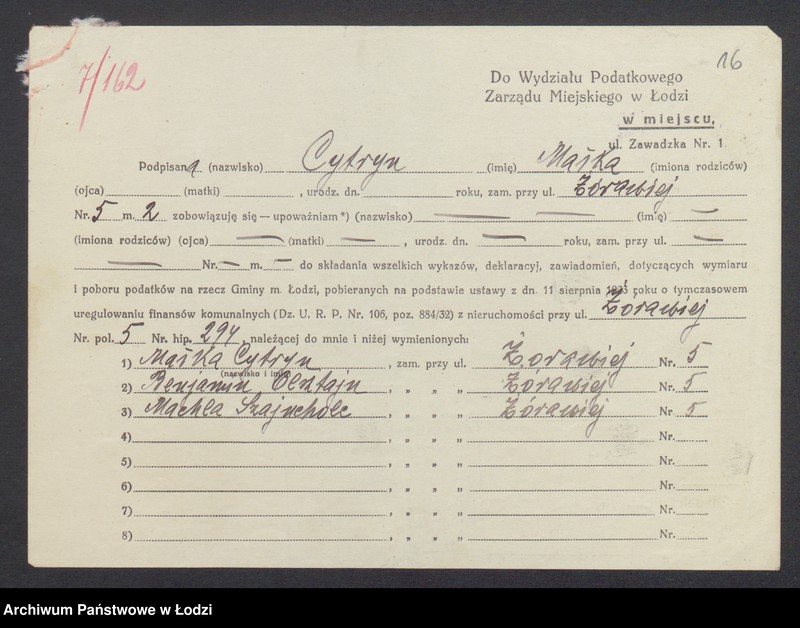 7/162
16
Do Wydziału Podatkowego
Zarządu Miejskiego w Łodzi
w miejscu,
ul. Zawadzka Nr. 1.
Podpisana (nazwisko) Cytryn (imię) Maśka (imiona rodziców)
(ojca) (matki) , urodz. dn. roku, zam. przy ul. Żórawiej
Nr. 5 m. 2 zobowiązuję się — upoważniam *) (nazwisko) — — (imię) —
(imiona rodziców) (ojca) — (matki) — , urodz. dn. — roku, zam. przy ul. —
— Nr. — m. — do składania wszelkich wykazów, deklaracyj, zawiadomień, dotyczących wymiaru
i poboru podatków na rzecz Gminy m. Łodzi, pobieranych na podstawie ustawy z dn. 11 sierpnia 1923 roku o tymczasowem
uregulowaniu finansów komunalnych (Dz. U. R. P. Nr. 106, poz. 884/32) z nieruchomości przy ul. Żórawiej
Nr. pol. 5 Nr. hip. 294, należącej do mnie i niżej wymienionych:
1) Maśka Cytryn , zam. przy ul. Żórawiej Nr. 5
(nazwisko i imię)
2) Benjamin Olsztajn , „ „ „ Żórawiej Nr. 5
3) Machla Szajnholc , „ „ „ Żórawiej Nr. 5
4) , „ „ „ Nr.
5) , „ „ „ Nr.
6) , „ „ „ Nr.
7) , „ „ „ Nr.
8) , „ „ „ Nr.
Archiwum Państwowe w Łodzi